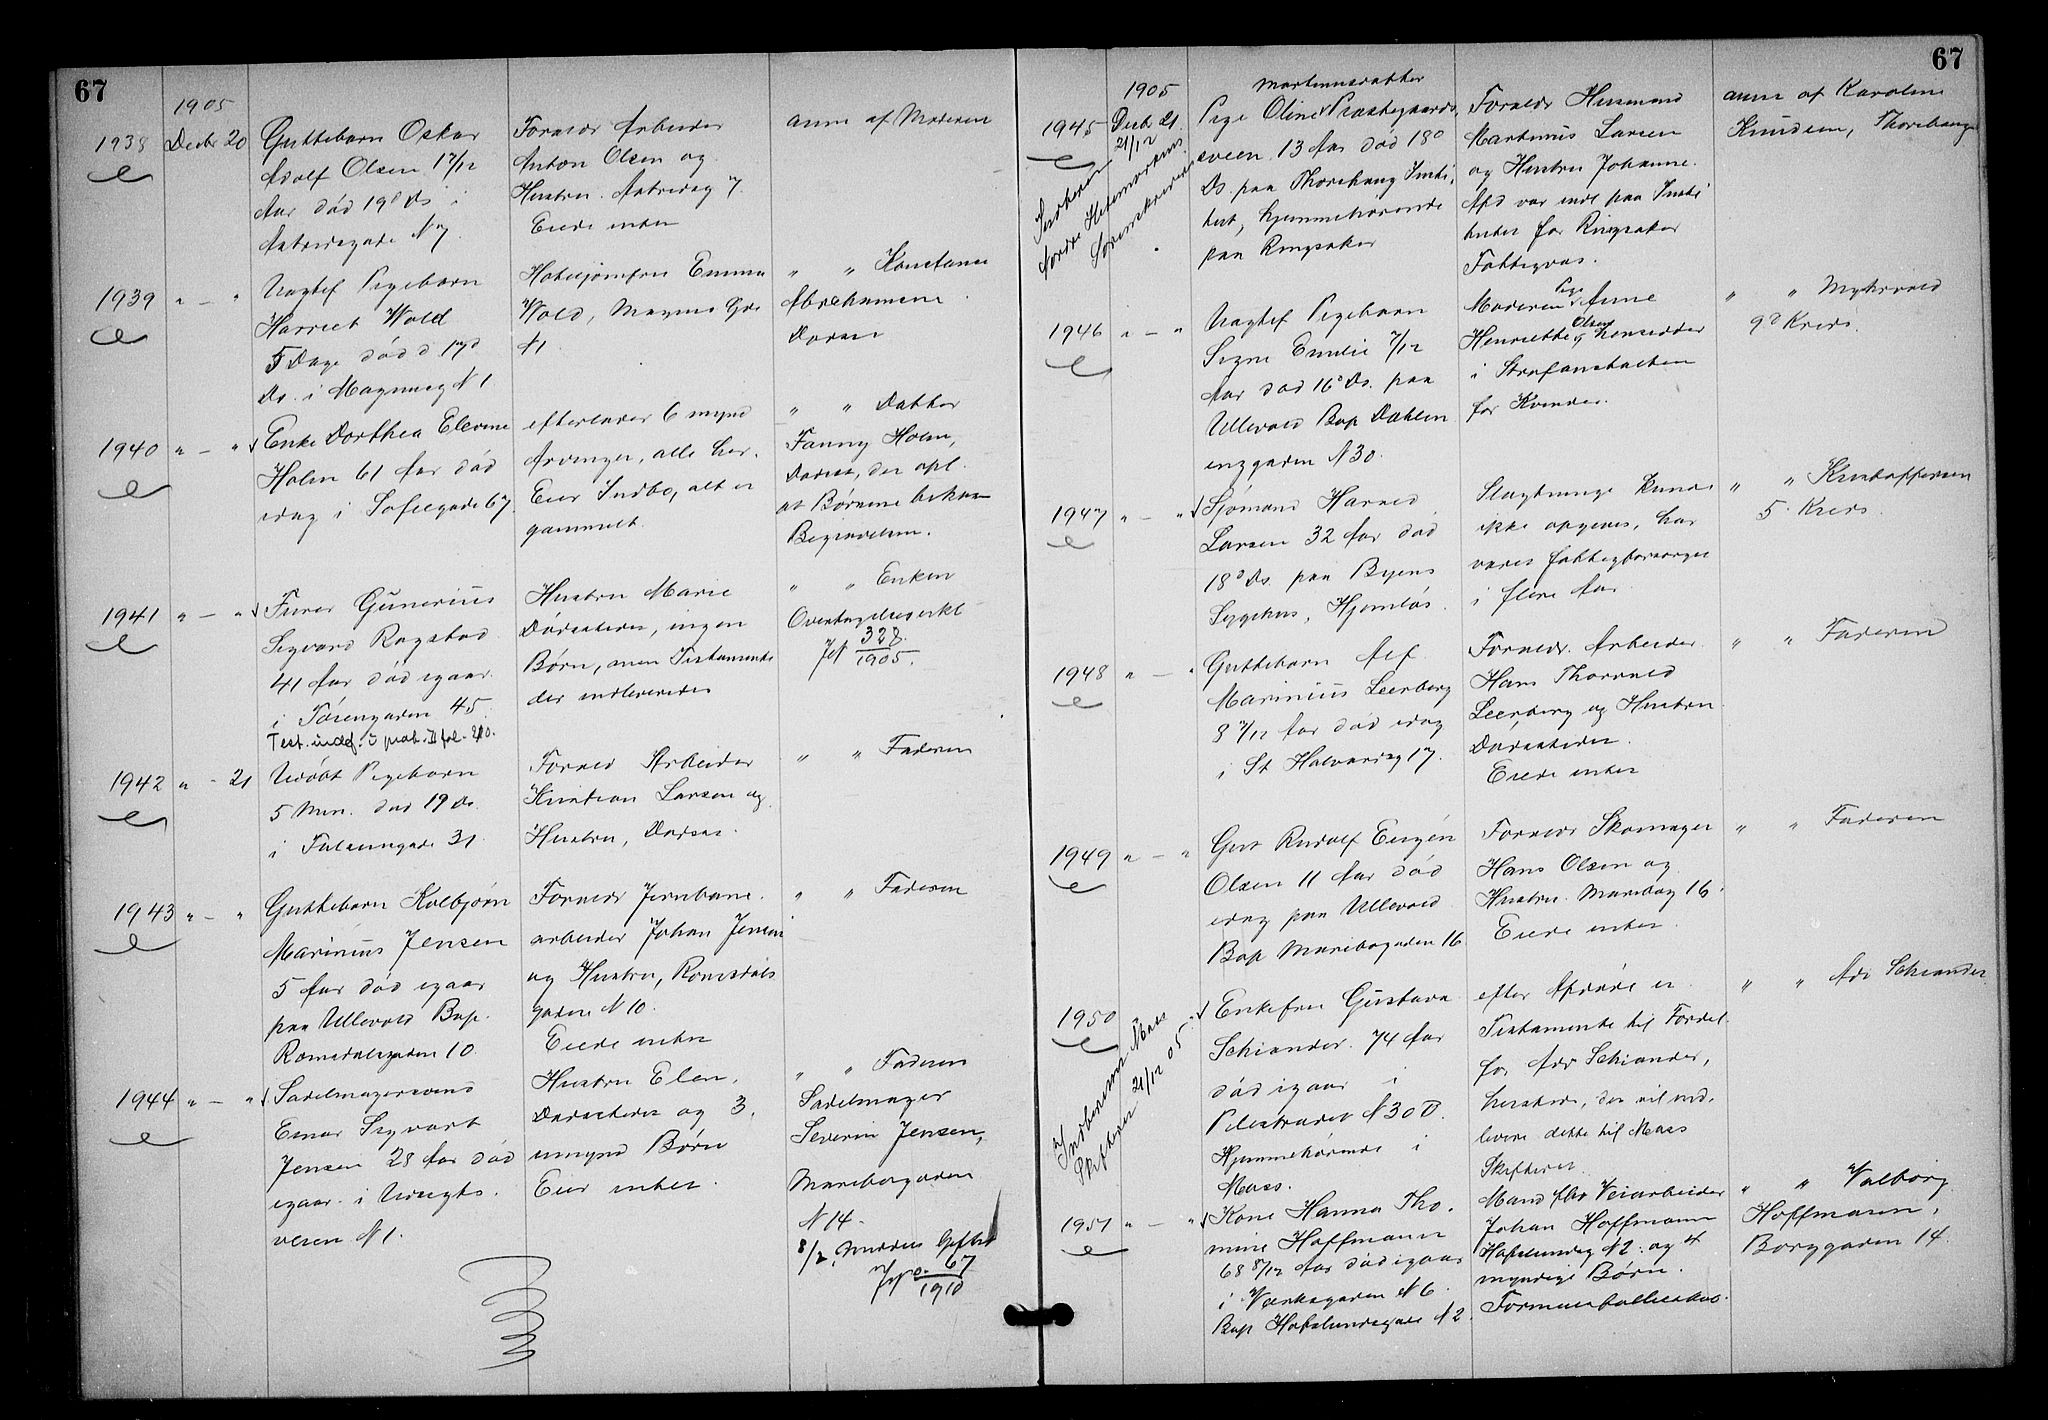 67
1905
1938 Decbr 20 Guttebarn Oskar
Adolf Olsen 17/12
Aar död 19d Ds i
Astridsgade N 7
Forældr Arbeider
Anton Olsen og
Hustru Astridsg 7
Eiede intet
anm af Moderen
1939 " — " Uægtef Pigebarn
Harriet Wold
5 Dage död d 17d
Ds. i Magnusg N 1
Hoteljomfru Emma
Wold, Magnus Gde
N 1.
" " Konstanse
Abrahamsen
Dersds
1940 " — " Enke Dorthea Elevine
Holm 61 Aar död
idag i Sofiegade 67
efterlader 6 mynd
Arvinger, alle her.
Eier Indbo, alt er
gammelt.
" " Datter
Fanny Holm,
Dersds, der opl.
at Börnene bekoster
Begravelsen.
1941 " — " Furer Gunerius
Sigvard Rogstad
41 Aar död igaar
i Tösengaden 45.
Test. indf. i prot. II fol. 210.
Hustru Marie
Dödsstedet, ingen
Börn, men Testamente
der indleveredes
" " Enken
Overtagelseserkl
Jof 328
1905.
1942 " - 21 Udöbt Pigebarn
5 Min. död 19 Ds.
i Falsensgade 31
Forældr Arbeider
Kristian Larsen og
Hustru, Dersds.
" " Faderen
1943 " — " Guttebarn Kolbjörn
Marinius Jensen
5 Aar död igaar
paa Ullevold Bop.
Romsdalsgaden 10
Forældr Jernbane-
arbeider Johan Jensen
og Hustru, Romsdals
gaden N 10.
Eiede intet
" " Faderen
1944 " — " Sadelmagersvend
Einar Sigvart
Jensen 28 Aar död
igaar i Udsigts-
veien N 1.
Hustru Elen,
Dödsstedet og 3
umynd Börn
Eier intet.
" " Faderen
Sadelmager
Severin Jensen,
Maribogaden
N 14.
67
1910
67
1905
1945 Decbr 21. Martinusdatter
Pige Oline Præstegaards
sveen 13 Aar död 18d
Ds. paa Thorshaug Insti-
tut, hjemmehörende
paa Ringsaker
21/12
Indberet
Nordre Hedemarkens
Sorenskriveri
Forældr Husmand
Martinus Larsen
og Hustru Johanne.
Afd var inds paa Insti
tutet for Ringsaker
Fattigvæs.
anm af Karoline
Knudsen, Thorshaug
1946 " — " Uægtef Pigebarn
Signe Emilie 7/12
Aar död 16d Ds. paa
Ullevold Bop Dahlen
enggaden N 30.
Moderen Pige Anne
Henriette Olsen, hensidder
i Strafanstalten
for Kvinder.
" " Myhrvold
9d Kreds.
1947 " — " Sjömand Harald
Larsen 32 Aar död
18d Ds. paa Byens
Sygehus, Hjemlös.
Slægtninge kunde
ikke opgives, har
været fattigforsörget
i flere Aar.
" " Kristoffersen
5. Kreds.
1948 " — " Guttebarn Alf
Marinius Leerberg
8 7/12 Aar död idag
i St Halvardsg 17.
Forældr. Arbeider
Hans Thorvald
Leerberg og Hustru
Dödsstedet.
Eiede intet
" " Faderen
1949 " — " Gut Rudolf Eugén
Olsen 11 Aar död
idag paa Ullevold
Bop Maribogaden 16
Forældr Skomager
Hans Olsen og
Hustru Maribog 16.
Eiede intet.
" " Faderen
1950 Enkefru Gustava
Schiander 74 Aar
död igaar i
Pilestrædet N 30 D.
Hjemmehörende i
Moss.
Indberettet Moss
Skifteret 21/12 05
efter Afdöde er
Testamente til Fordel
for Adv Schiander,
hersteds, der vil ind-
levere dette til Moss
Skifteret
" " Adv Schiander
1951 " — " Kone Hanna Tho-
mine Hoffmann
68 8/12 Aar död igaar
i Værksgaden N 6.
Bop Hafslundsgade N 2
Mand fhv Veiarbeider
Johan Hoffmann
Hafslundsg N 2. og 4
myndige Börn.
Formuesfællesskab.
" " Valborg
Hoffmann,
Borggaden 14.